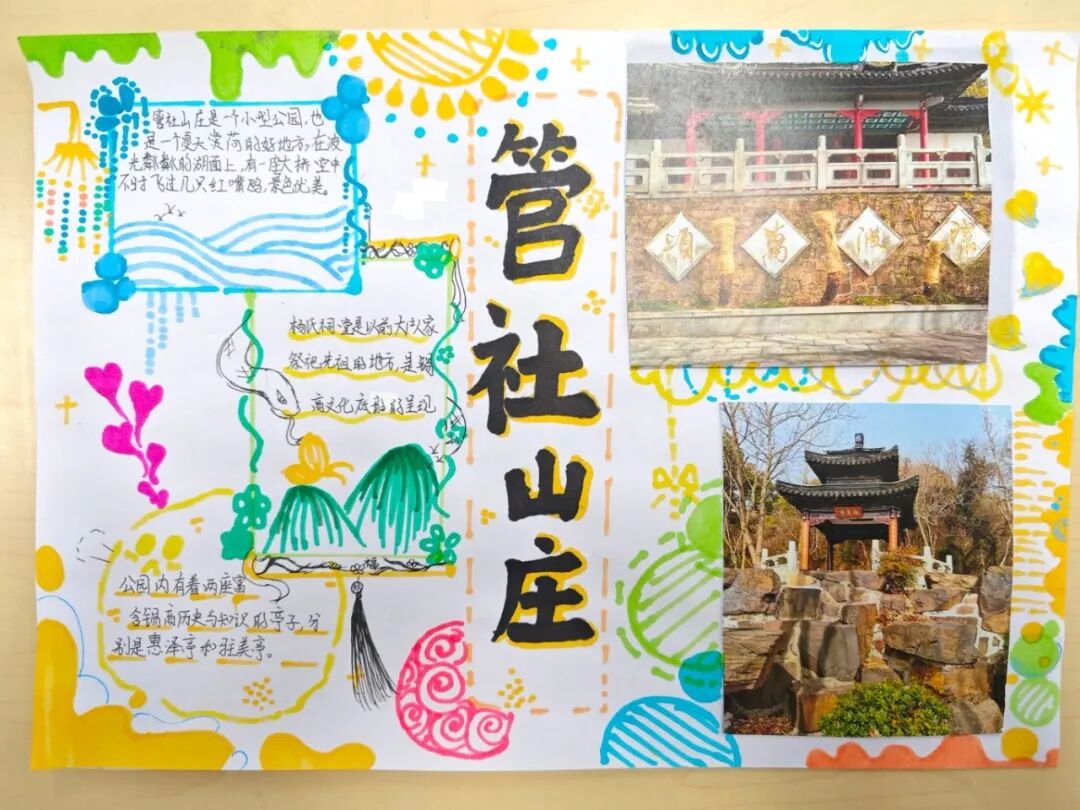 管社山庄是一个小型公园,也
是一个夏天赏荷的好地方,在波
光粼粼的湖面上,有一座大桥空中
不时飞过几只红嘴鸥,景色优美。
杨氏祠堂是以前大队家
祭祀先祖的地方,是锡
商文化底蕴的呈现
福
公园内有着两座富
含锡商历史与知识的亭子,分
别是惠泽亭和驻美亭。
管社山庄
頃萬波湖